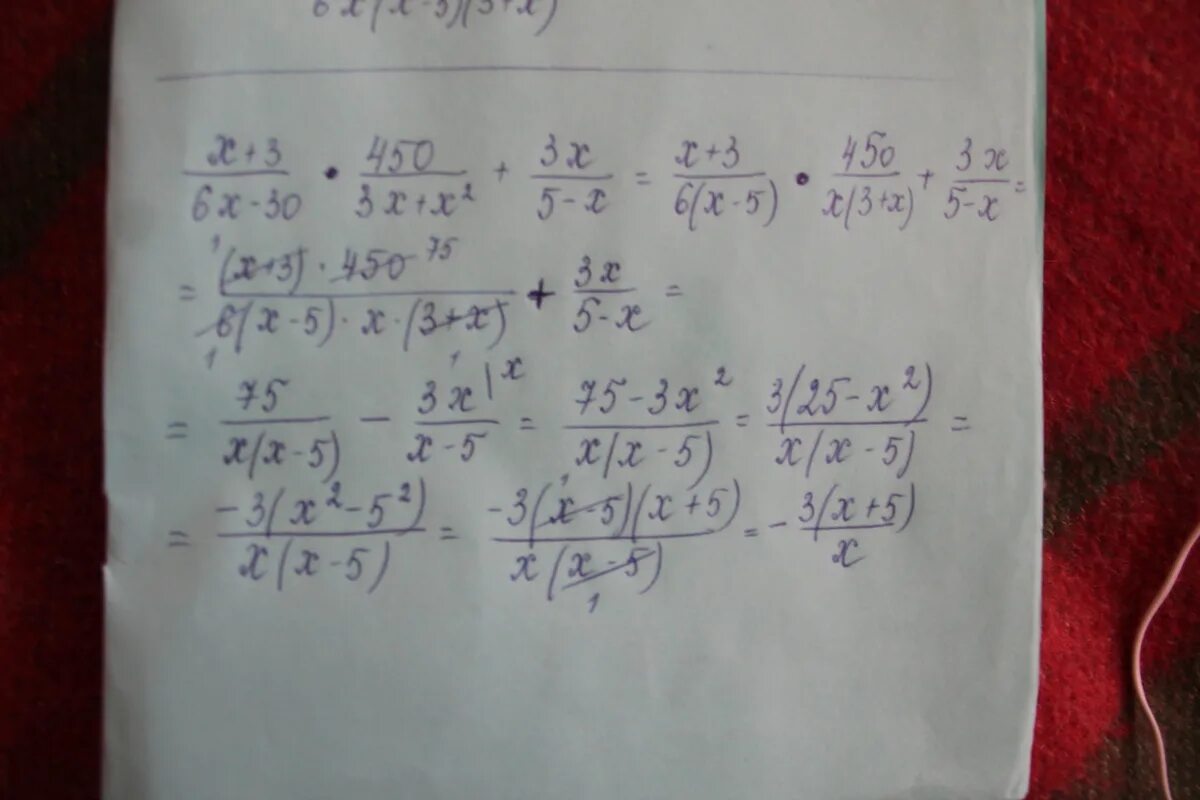 6x(x-5)(3+x)
(x+3)/(6x-30) • 450/(3x+x²) + 3x/(5-x) = (x+3)/(6(x-5)) • 450/(x(3+x)) + 3x/(5-x) =
= ¹(x+3)·450 ⁷⁵/(₁6(x-5)·x·(3+x)₁) + 3x/(5-x) =
= 75/(x(x-5)) - 3x|ˣ/(x-5) = (75-3x²)/(x(x-5)) = 3(25-x²)/(x(x-5)) =
= -3(x²-5²)/(x(x-5)) = -3(x-5)¹(x+5)/(x(x-5)₁) = - 3(x+5)/x